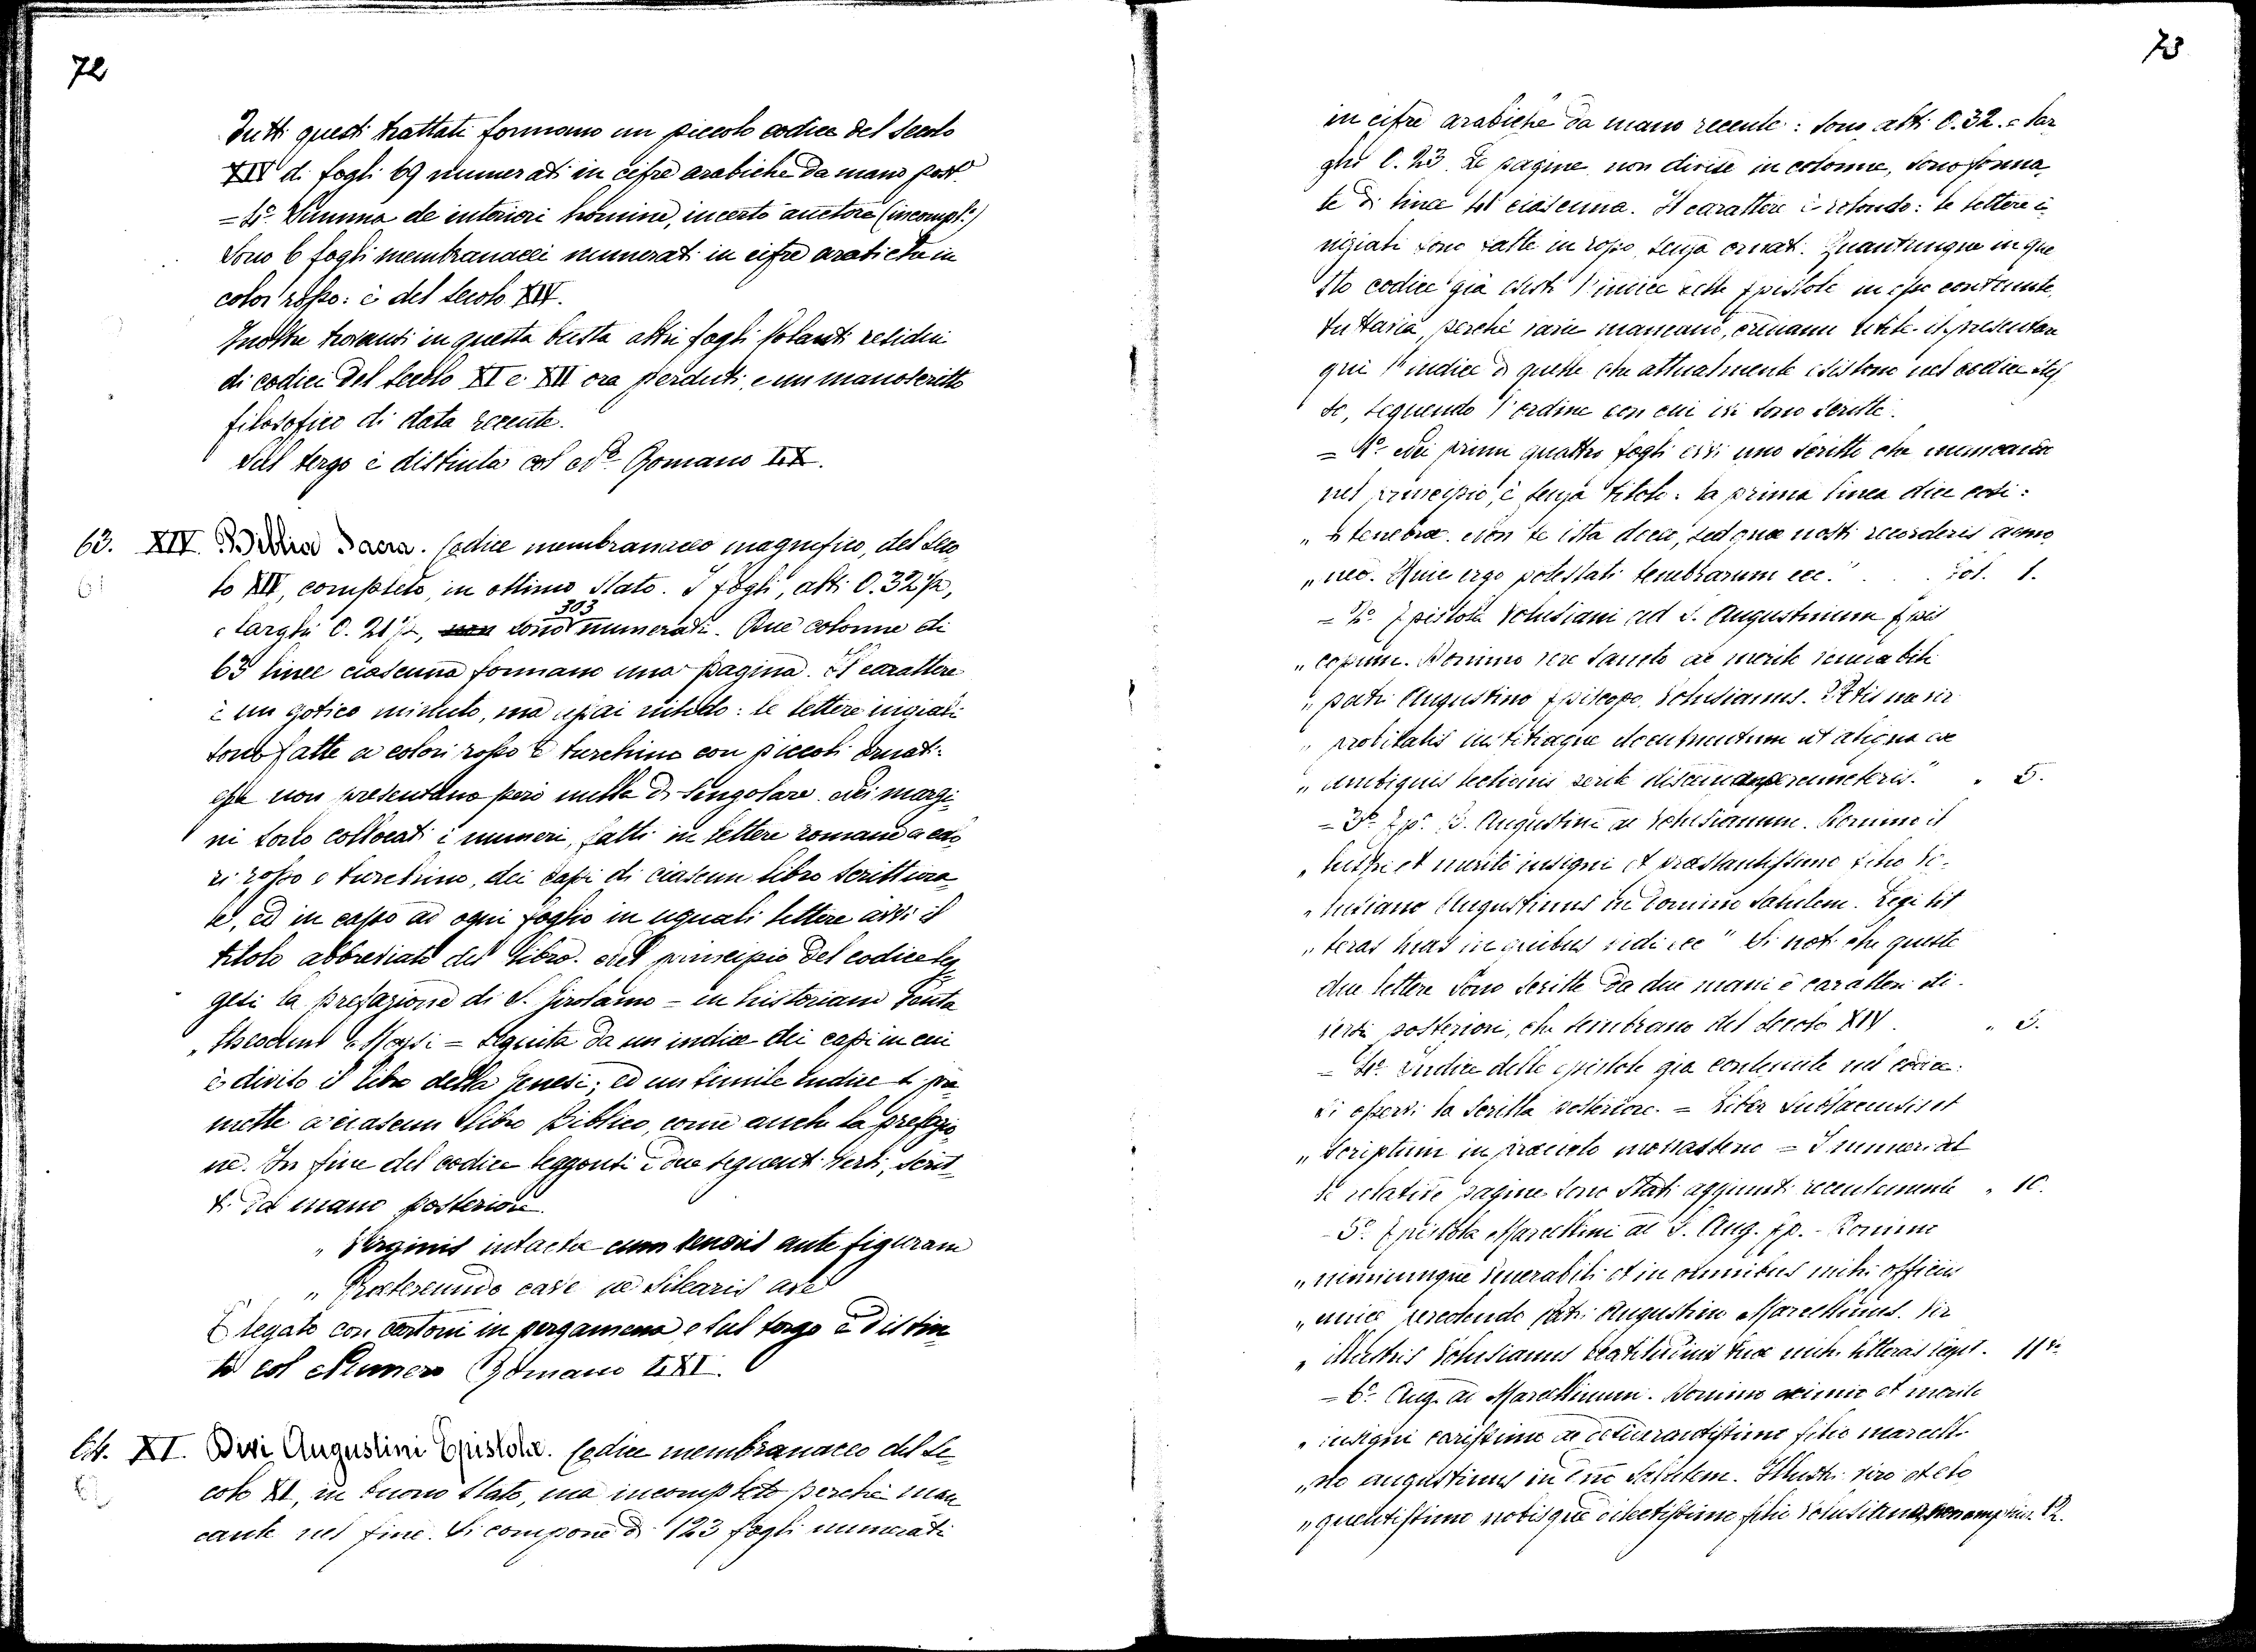 72
Tutti questi trattati formano un piccolo codice del Secolo
XIV di fogli 69 numerati in cifre arabiche da mano post.
= 4º Summa de interiori homine, incerto auctore (incompl.º)
Sono 6 fogli membranacei numerati in cifre arabiche in
color rosso: è del Secolo XIV.
Inoltre trovansi in questa busta altri fogli volanti residui
di codici del Secolo XI e XII ora perduti, e un manoscritto
filosofico di data recente.
Sul tergo è distinta col Nº Romano LX.
63. XIV. Biblia Sacra. Codice membranaceo magnifico, del Seco
61
lo XIV, completo, in ottimo Stato. I fogli, alti 0.32½,
e larghi 0.21½, sono 303 numerati. Due colonne di
63 linee ciascuna formano una pagina. Il carattere
è un gotico minuto, ma assai nitido: le lettere iniziali
sono fatte a colori rosso e turchino con piccoli ornati:
esse non presentano però nulla di singolare. Nei margi-
ni sono collocati i numeri, fatti in lettere romane a colo
ri rosso e turchino, dei capi di ciascun libro scrittura
le, ed in capo ad ogni foglio in uguali lettere avvi il
titolo abbreviato del libro. Nel principio del codice leg
gesi la prefazione di S. Girolamo = in historiam
" Moysi = seguita da un indice dei capi in cui
è diviso il libro della Genesi; ed un simile indice si pre
mette a ciascun libro Biblico, come anche la prefazio
ne. In fine del codice leggonsi i due seguenti versi, scrit
ti da mano posteriore.
" Virginis intactae cum veneris ante figuram
" Praetereundo cave ne sileatur ave
È legato con cartoni in pergamena, e sul tergo è distin
to col Numero Romano LXI.
64. XI. Divi Augustini Epistolæ. Codice membranaceo del Se
colo XI, in buono Stato, ma incompleto perchè man
cante nel fine. Si compone di 123 fogli numerati
73
in cifre arabiche da mano recente: sono alti 0.32. e lar
ghi 0.23. Le pagine non divise in colonne, sono forma
te di linee ciascuna. Il carattere è rotondo: le lettere i
niziali sono fatte in rosso, senza ornati. Quantunque in que
sto codice già esisti l'indice delle Epistole in esso contenute,
tuttavia, perchè varie mancano, crediamo utile il presentare
qui l'indice di quelle che attualmente esistono nel codice stes
so, seguendo l'ordine con cui ivi sono scritte.
= 1º Nei primi quattro fogli avvi uno scritto che mancando
nel principio, è senza titolo: la prima linea dice così:
" tenebrae. Non te ista doceo, sed quae nosti recorderis admo
" neo. Huic ergo potestati tenebrarum ecc." . . fol. 1.
= 2º Epistola Volusiani ad S. Augustinum Epis
" copum. Domino vere sancto ac merito venerabili
" patri Augustino Episcopo, Volusianus. Petis me vir
" probitatis iustitiaeque documentum ut aliqua ex
" ambiguis lectionis percuncteris." " 5.
= 3º Ep. S. Augustini ad Volusianum. Domino il
" lustri et merito insigni et praestantissimo filio Vo-
" lusiano Augustinus in Domino Salutem. Legi lit
" teras tuas in quibus vidi ecc" Si noti che queste
due lettere sono scritte da due mani e caratteri di-
versi posteriori, che sembrano del Secolo XIV. " 5.
= 4º Indice delle epistole già contenute nel codice:
vi osservi la scritta posteriore. = Liber Sublacensis et
" scriptum in praedicto monasterio = I numeri del
le relative pagine sono stati aggiunti recentemente " 10.
- 5º Epistola Marcellini ad S. Aug. Ep. - Domino
" nimiumque venerabili et in omnibus mihi officiis
" unice percolendo Patri Augustino Marcellinus. Vir
" illustris Volusianus beatitudinis tuae mihi litteras legit. 11 v.
= 6º Aug. ad Marcellinum. Domino eximio et merito
" insigni carissimo ac desiderantissimo filio marcelli
" no augustinus in Dño Salutem. Illustri viro et elo
" quentissimo nobisque dilectissimo filio Volusiano, 12.